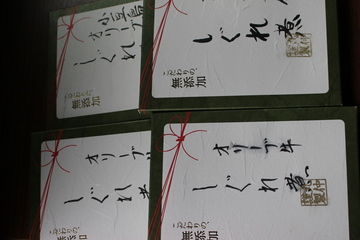 小豆島
オリーブ
しぐれ
こだわりの、
無添加
しぐれ煮
こだわりの、
無添加
オリーブ
しぐれ
こだわりの、
無添加
オリーブ牛
しぐれ煮
こだわりの、
無添加